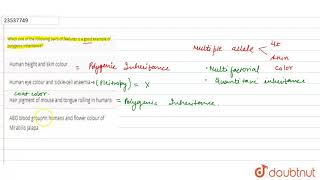 23537749
Which one of the following pairs of features is a good example of polygenic inheritance?
Human height and skin colour = Polygenic Inheritance
Human eye colour and sickle-cell anaemia → (Pleitropy) = X
coat color.
Hair pigment of mouse and tongue rolling in humans = Polygenic Inheritance.
ABO blood group in humans and flower colour of
Mirabilis jalapa
Multiple allele
skin
• Multifactorial color
• Quantitative inheritance
doubtnut